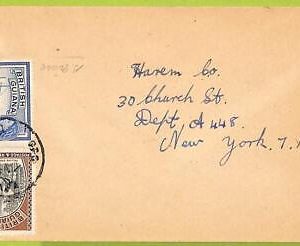 Harem Co.
30 Church St.
Dept, A 448.
New York. 7.
BRITISH
GUIANA
BRITISH